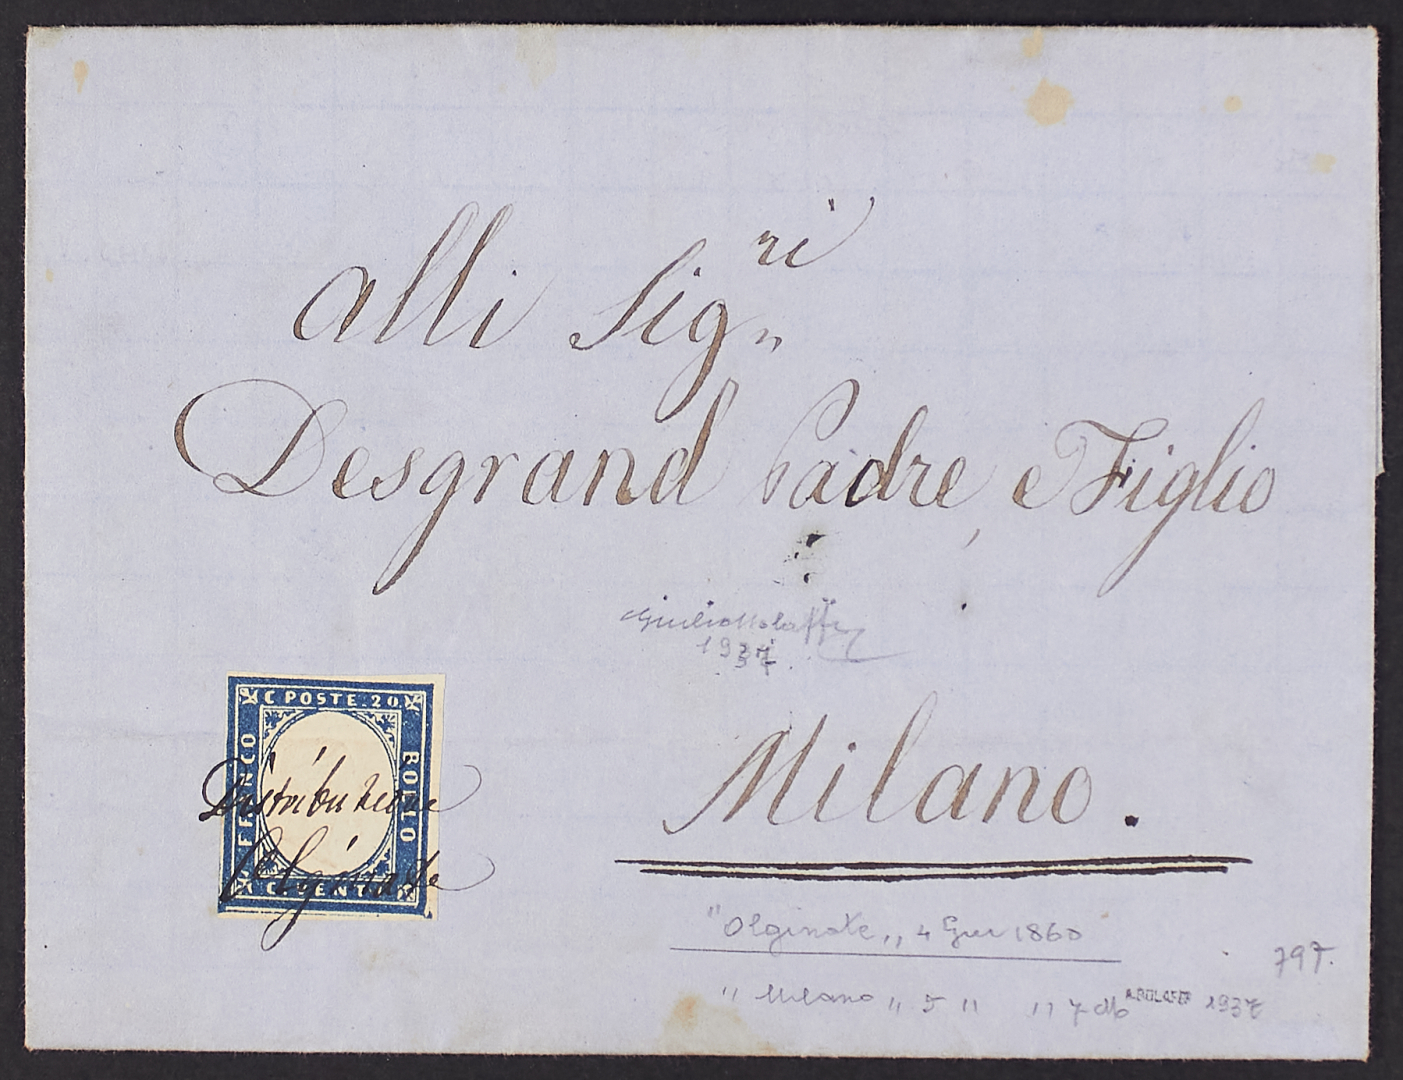 Alli Sig.ri
Desgrand Padre, e Figlio
1937
Milano.
C POSTE. 20
FRANCO
BOLLO
C. VENTI
Distribuzione
Olginate
"Olginate,, 4 Giu 1860
" Milano ,, 5 " " 7 A. BOLAFFI 1937
797.